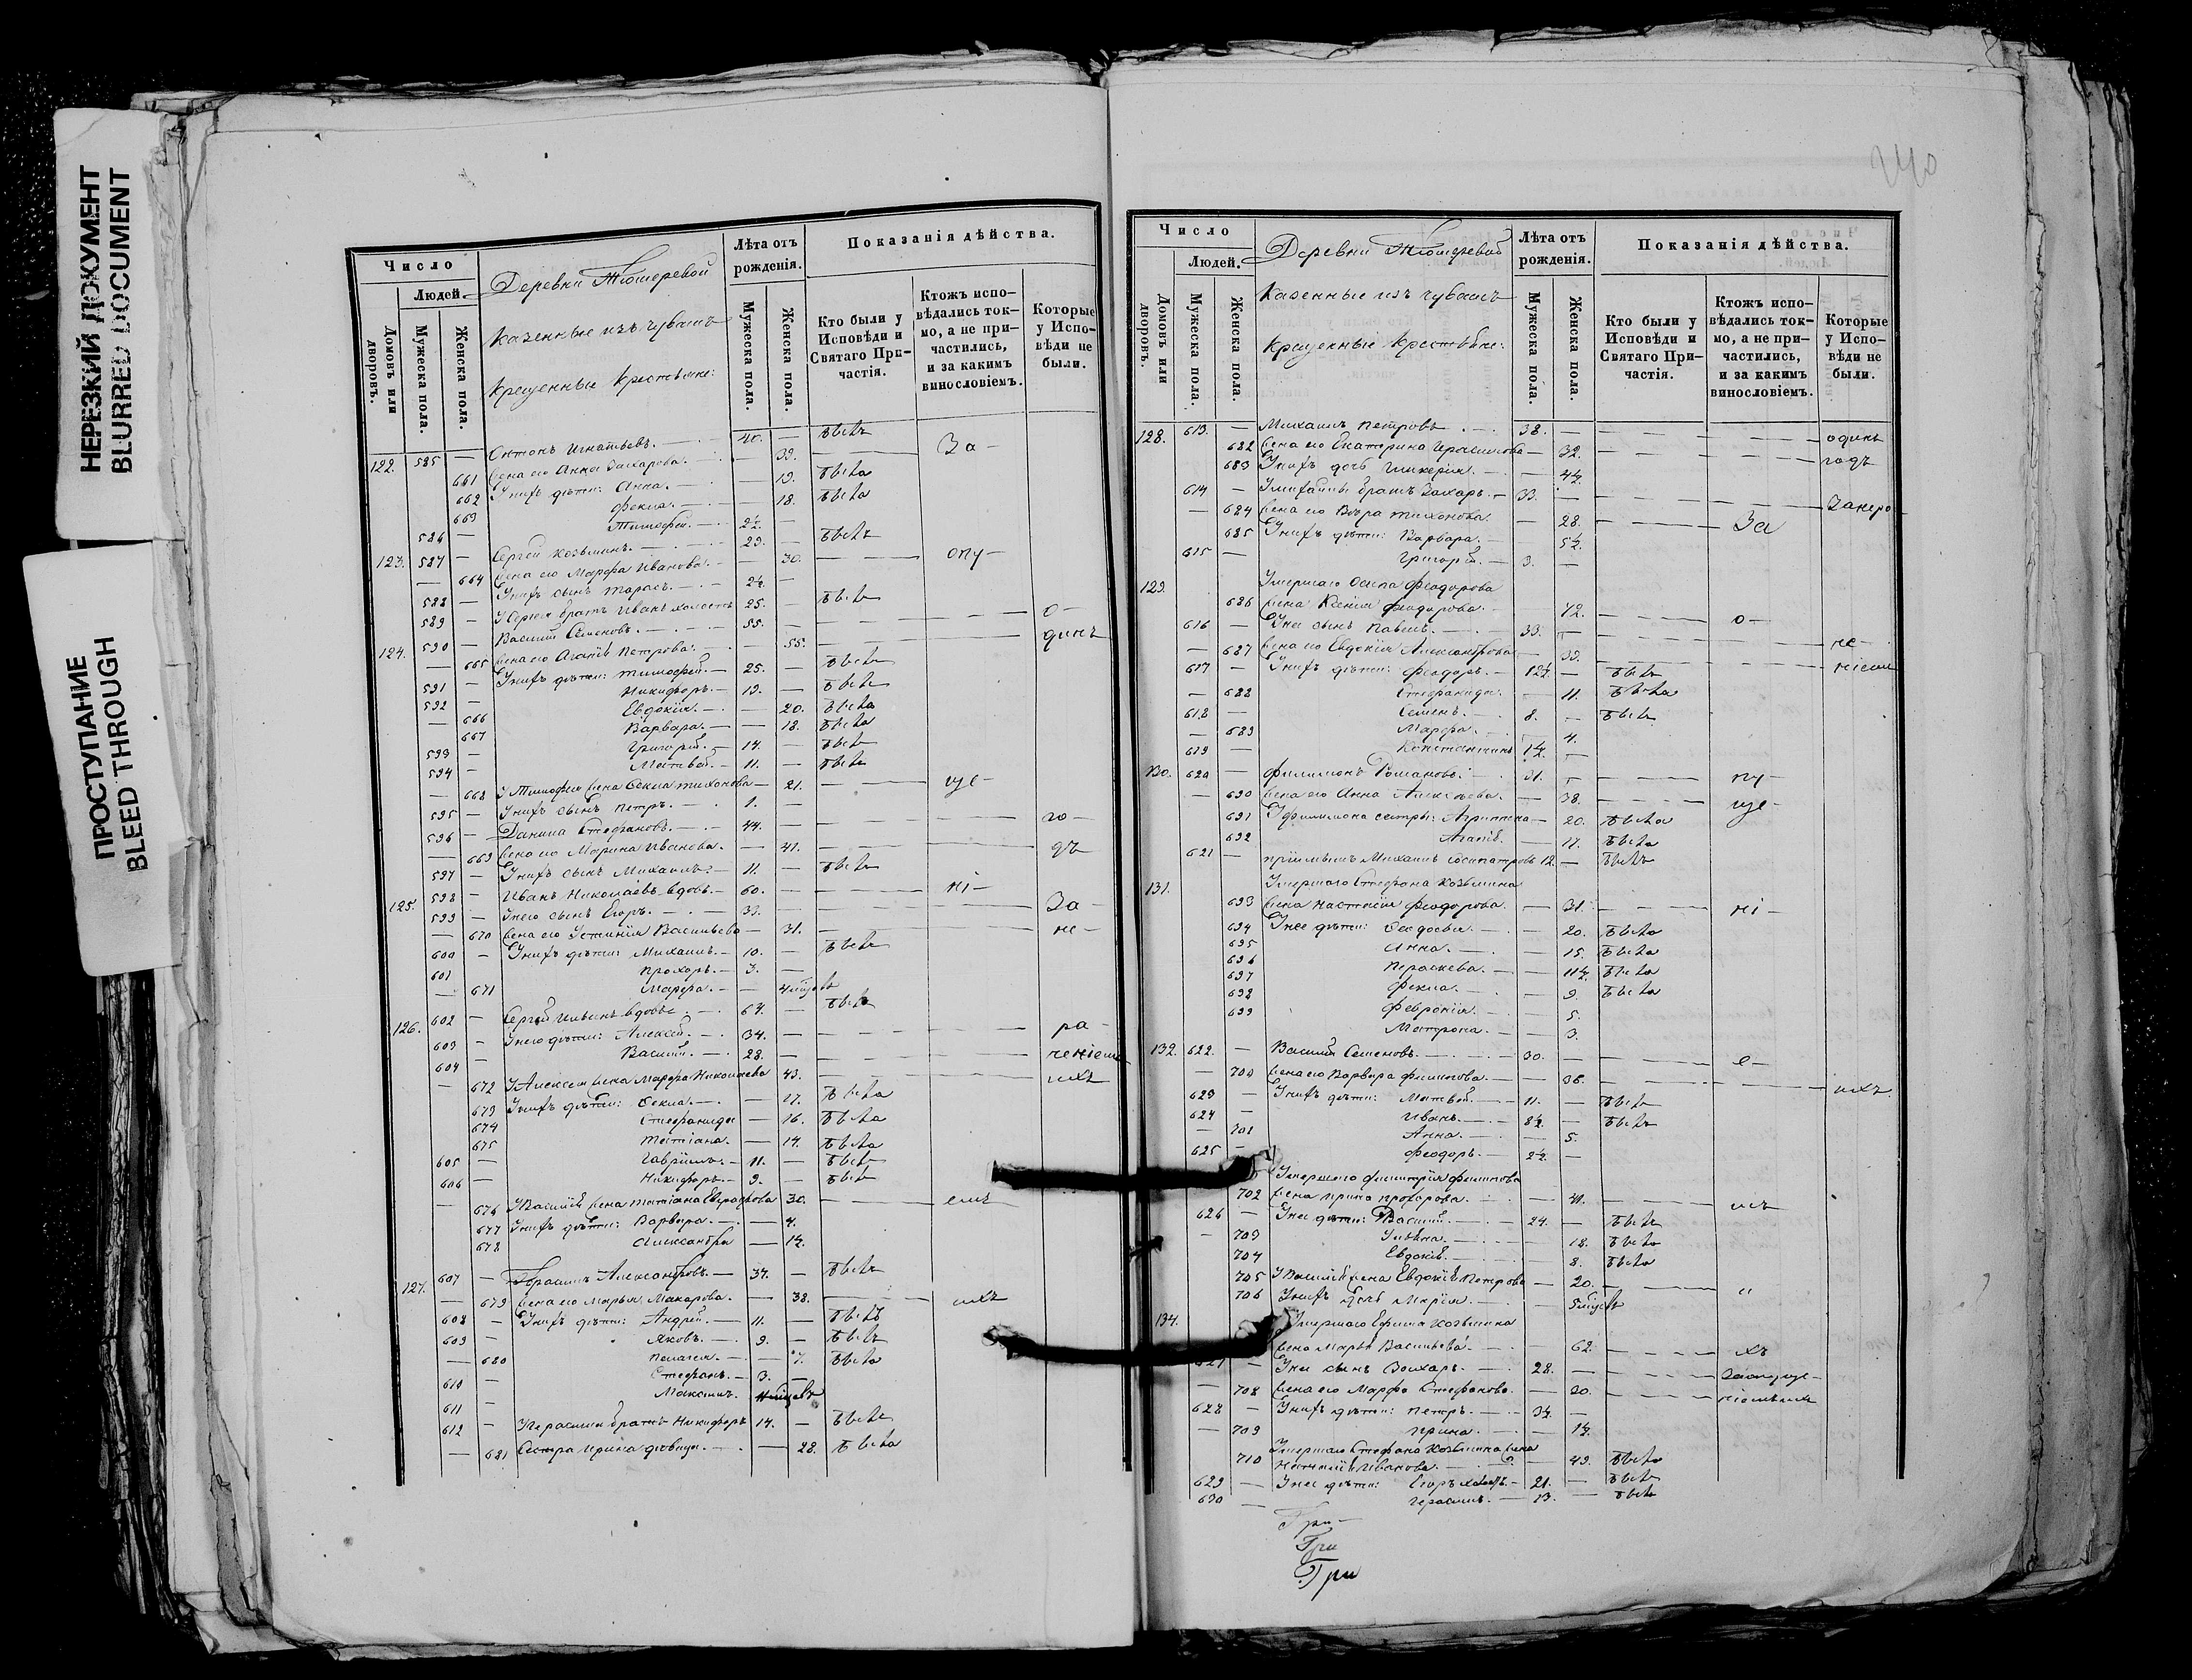 НЕРЕЗКИЙ ДОКУМЕНТ
BLURRED DOCUMENT
ПРОСТУПАНИЕ
BLEED THROUGH
Число
Людей.
Домовъ или дворовъ.
Мужеска пола.
Женска пола.
Деревни Тюмеревой
казенные изъ чувашъ
крещенные крестьяне:
Лѣта отъ рожденія.
Мужеска пола.
Женска пола.
Показанія дѣйства.
Кто были у Исповѣди и Святаго При-частія.
Ктожъ испо-вѣдались ток-мо, а не при-частились, и за какимъ винословіемъ.
Которые у Испо-вѣди не были.
122. 585 — Антонъ Игнатьевъ. — 40. —
661 жена его Анна Захарова. — 39. За-
662 У нихъ дѣти: Анна. — 19.
663 Фекла. — 18.
586 — Тимофей. — 2½. —
123. 587 — Сергей Козьминъ. — 29. —
— 664 жена его Марфа Иванова. — 30. опу-
588 — У нихъ сынъ Тарасъ. — 2½. —
589 — У Сергея братъ Иванъ холостъ 25. —
124. 590 — Василий Семеновъ. — 55. — о-
— 665 жена его Агапія Петрова. — 55. динъ
591 — У нихъ дѣти: Тимофей. — 25. —
592 — Никифоръ. — 19. —
— 666 Евдокія. — 20.
667 Варвара. — 18.
593 — Григорій. — 14. —
594 — Матвей. — 11. —
— 668 У Тимофея жена Фекла Тихонова — 21. ще-
595 — У нихъ сынъ Петръ. — 1. —
596 — Данила Стефановъ. — 44. — го-
— 669 жена его Марина Иванова. — 41. дъ
597 — У нихъ сынъ Михаилъ. — 11. —
125. 598 — Иванъ Николаевъ вдовъ. — 60. — ні-
599 — У него сынъ Егоръ. — 33. — За-
— 670 жена его Устинія Васильева — 31. не-
600 — У нихъ дѣти: Михаилъ. — 10. —
601 — Прохоръ. — 3. —
— 671 Марфа. —
126. 602 — Сергей Ильинъ вдовъ — 64. —
603 — У него дѣти: Алексей. — 34. — ра-
604 — Василий. — 28. — ченіем
— 672 У Алексея жена Марфа Николаева 43. ихъ
673 У нихъ дѣти: Фекла. — 17.
674 Стефанида — 16.
675 Татіана. — 14.
605 — Гавріилъ. — 11. —
606 — Никифоръ. — 9. —
— 676 У Василія жена Татіана Евграфова 30. емъ
677 У нихъ дѣти: Варвара. — 4.
678 Александра — 1½.
127. 607 — Герасимъ Александровъ. — 37. —
— 679 жена его Марья Макарова. — 38. ихъ
608 — У нихъ дѣти: Андрей. — 11. —
609 — Яковъ. — 9. —
— 680 Пелагея. — 7.
610 — Стефанъ. — 3. —
611 — Максимъ.
612 — У Герасима братъ Никифоръ 14. —
— 681 Сестра Ирина дѣвица. — 28.
240
Число
Людей.
Домовъ или дворовъ.
Мужеска пола.
Женска пола.
Деревни Тюмеревой
казенные изъ чувашъ
крещенные крестьяне:
Лѣта отъ рожденія.
Мужеска пола.
Женска пола.
Показанія дѣйства.
Кто были у Исповѣди и Святаго При-частія.
Ктожъ испо-вѣдались ток-мо, а не при-частились, и за какимъ винословіемъ.
Которые у Испо-вѣди не были.
128. 613. — Михаилъ Петровъ — 38. — одинъ
682 жена его Екатерина Герасимова — 32. годъ
683 У нихъ дочь Гликерія. — 4½.
614 — У Михайлы братъ Захаръ. — 33. — Занера
— 684 жена его Вѣра Тихонова. — 28. За
685 У нихъ дѣти: Варвара. — 5½.
615 — Григорій. — 3. —
129. Умершаго Осипа Феодорова
686 жена Ксенія Феодорова. — 72. о-
616 — У нея сынъ Павелъ. — 33. — че-
— 687 жена его Евдокія Александрова — 33. ніем
617 — У нихъ дѣти: Феодоръ. — 12½. —
— 688 Стефанида. — 11.
618 — Семенъ. — 8. —
— 689 Марфа. — 4.
619 — Константинъ 1½. —
130. 620 — Филимонъ Романовъ. — 31. — пу-
— 690 жена его Анна Алексѣева. — 38. ще-
691 У Филимона сестры: Агрипина — 20.
692 Агапія. — 17.
621 — Пріимышъ Михаилъ 12. —
131. Умершаго Стефана Козьмина
693 жена Настасія Феодорова. — 31. ні-
694 У нее дѣти: Феодосья. — 20.
695 Анна. — 15.
696 Параскева. — 11½.
697 Фекла. — 9.
698 Февронія. — 5.
699 Матрона. — 3.
132. 622. — Василий Семеновъ. — 30. — е-
— 700 жена его Варвара Филипова. — 36. ихъ
623 — У нихъ дѣти: Матвей. — 11. —
624 — Иванъ. — 8½. —
— 701 Анна. — 5.
625 — Феодоръ. — 2½. —
Умершаго Филипова
702 жена Ирина Прохорова. — 41. мъ
626 — У нея дѣти: Василий. — 24. —
— 703 Ульяна. — 18.
704 Евдокія. — 8.
705 У Василія жена Евдокія Петрова — 20.
706 У нихъ дочь Марія. —
134. Умершаго Ефима Козьмина
жена Марья Васильева. — 62. хъ
627 — У нея сынъ Захаръ. — 28. — Заопуще-
— 708 жена его Марфа Стефанова. — 20.
628 — У нихъ дѣти: Петръ. — 3½. —
— 709 Ирина. — 1½.
Умершаго Стефана Козьмина жена
710 Иванова. — 49.
629 — У нея дѣти: Егоръ холостъ. — 21. —
630 — Герасимъ. — 13. —
Гри-
Гри
Гри